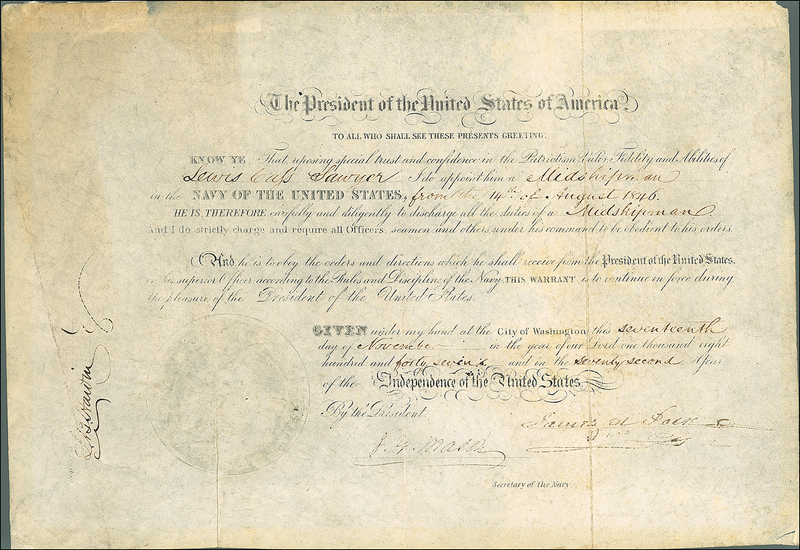 The President of the United States of America.
TO ALL WHO SHALL SEE THESE PRESENTS GREETING:
KNOW YE, That reposing special trust and confidence in the Patriotism Valor, Fidelity and Abilities of
Lewis Cass Sawyer I do appoint him a Midshipman
in the NAVY OF THE UNITED STATES, from the 14th of August 1846.
HE IS THEREFORE carefully and diligently to discharge all the duties of a Midshipman
And I do strictly charge and require all Officers, seamen and others, under his command to be obedient to his orders.
And he is to obey the orders and directions which he shall receive from the President of the United States,
his superior Officer according to the Rules and Discipline of the Navy. THIS WARRANT is to continue in force during
the pleasure of the President of the United States.
GIVEN under my hand at the City of Washington this seventeenth
day of November in the year of our Lord one thousand eight
hundred and forty seven and in the seventy second Year
of the Independence of the United States
By the President.
James K Polk
J. Y. Mason
Secretary of the Navy